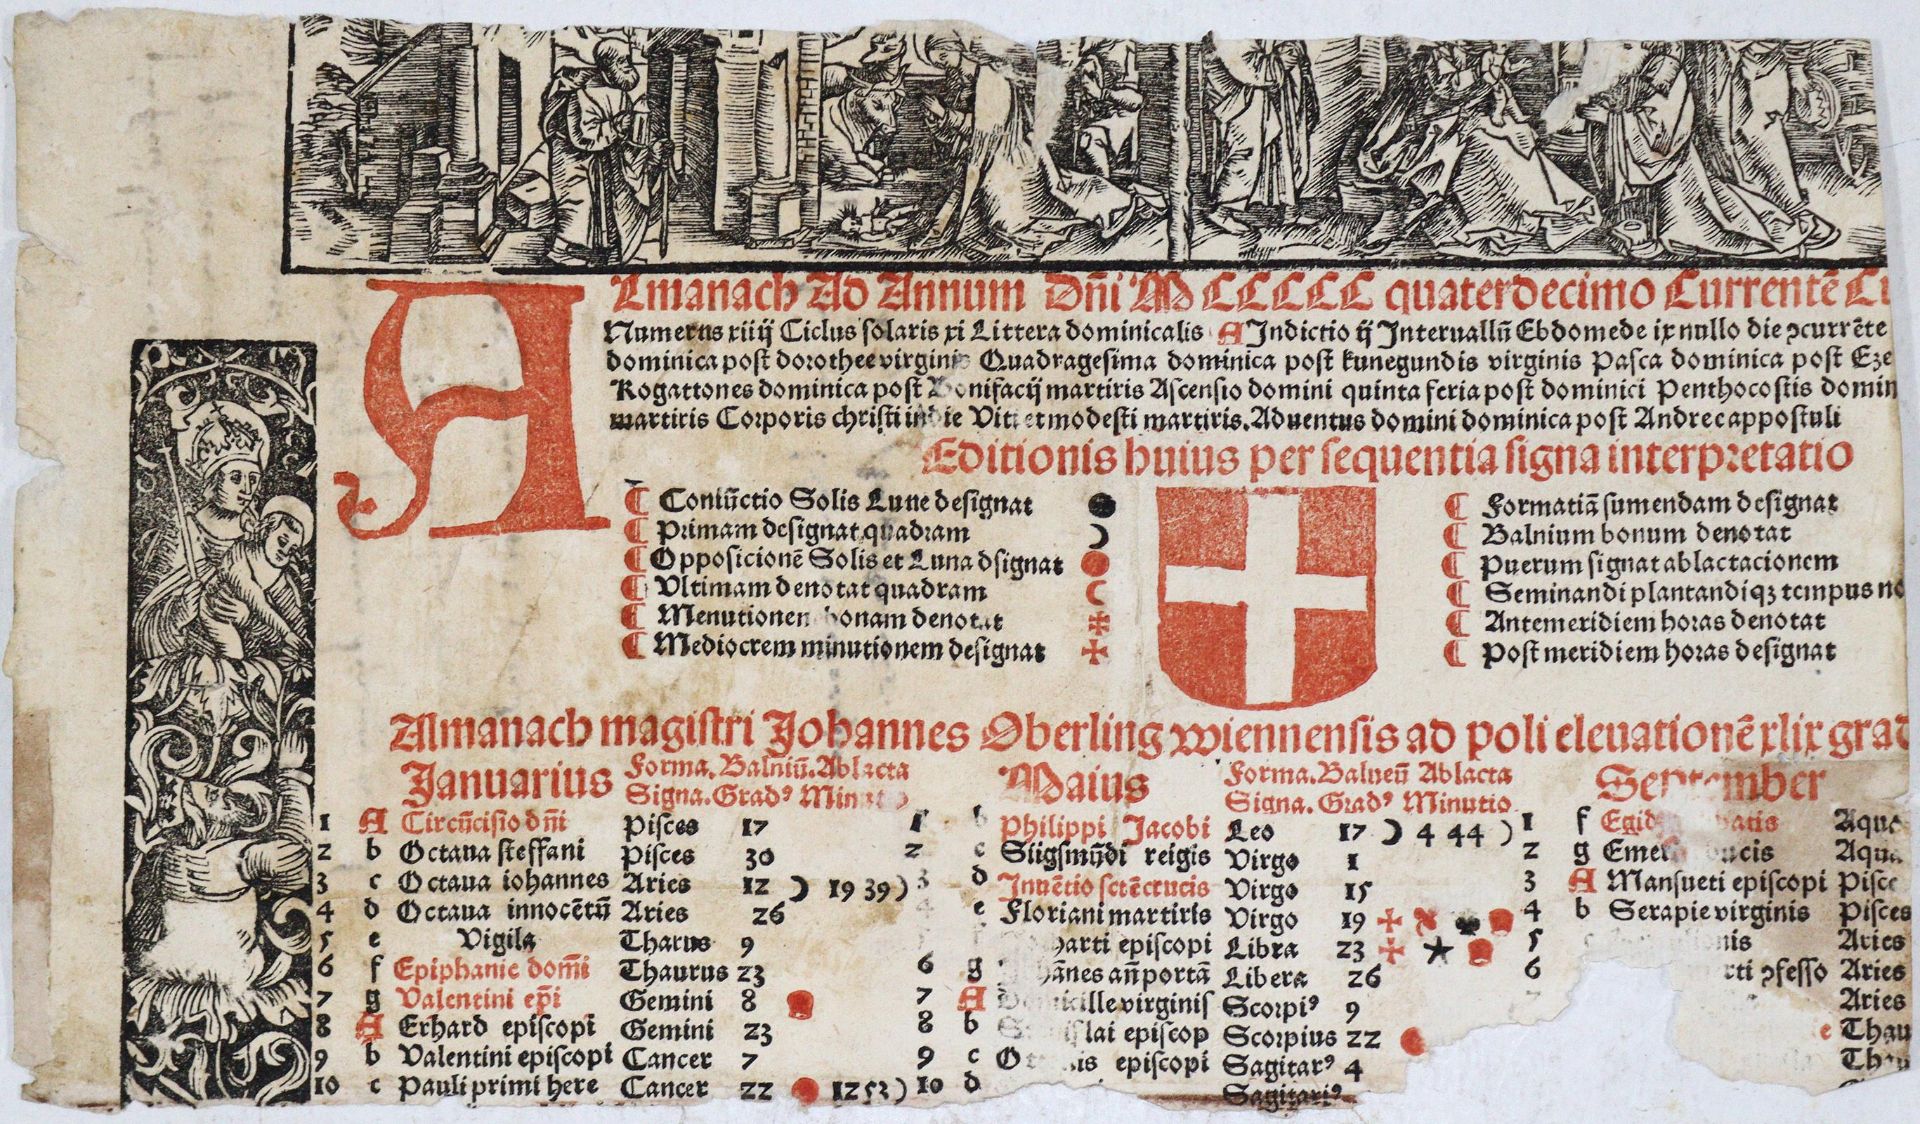 Almanach Ad Annum Dñi MCCCCC quaterdecimo Currentē Ci
Numerus xiiij Ciclus solaris xi Littera dominicalis A Indictio ij Interuallū Ebdomede ix nullo die ꝯcurrēte
dominica post dorothee virginis Quadragesima dominica post kunegundis virginis Pasca dominica post Eze
Rogattones dominica post Bonifacij martiris Ascensio domini quinta feria post dominici Penthocostis domin
martiris Corporis christi in die Viti et modesti martiris. Aduentus domini dominica post Andree appostuli
Editionis huius per sequentia signa interpretatio
¶ Coniūctio Solis Lune designat
¶ Primam designat quadram
¶ Opposicionē Solis et Luna dsignat
¶ Vltimam denotat quadram
¶ Menutionem bonam denotat
¶ Mediocrem minutionem designat
¶ Formatiā sumendam designat
¶ Balnium bonum denotat
¶ Puerum signat ablactacionem
¶ Seminandi plantandiqꝫ tempus no
¶ Antemeridiem horas denotat
¶ Post meridiem horas designat
Almanach magistri Johannes Oberling wiennensis ad poli eleuationē xlix grad
Januarius Forma. Balniū. Ablacta
Signa. Gradꝰ Minutio
1 A Circūcisio dñi Pisces 17
2 b Octaua steffani Pisces 30
3 c Octaua iohannes Aries 12 ☽ 19 39)
4 d Octaua innocētū Aries 26
5 e Vigila Tharus 9
6 f Epiphanie domī Thaurus 23
7 g Valentini ep̄i Gemini 8
8 A Erhard episcopi Gemini 23
9 b Valentini episcopi Cancer 7
10 c Pauli primi here Cancer 22 1252)
Maius Forma. Balneū Ablacta
Signa. Gradꝰ Minutio
1 b Philippi Jacobi Leo 17 ☽ 4 44 )
2 c Sigsmūdi reigis Virgo 1
3 d Inuētio sctē crucis Virgo 15
4 e Floriani martiris Virgo 19
5 episcopi Libra 23
6 g añ portā Libera 26
7 A virginis Scorpiꝰ 9
8 b episcop Scorpius 22
9 c episcopi Sagitarꝰ 4
10 d Sagitariꝰ
September
1 f Egidi Aqua
2 g Aqua
3 A Mansueti episcopi Pisce
4 b Serapie virginis Pisces
5 Aries
6 ꝯfesso Aries
Aries
e Thau
Thau